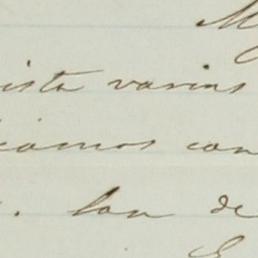 M
ista varias
camos con
Son de
E